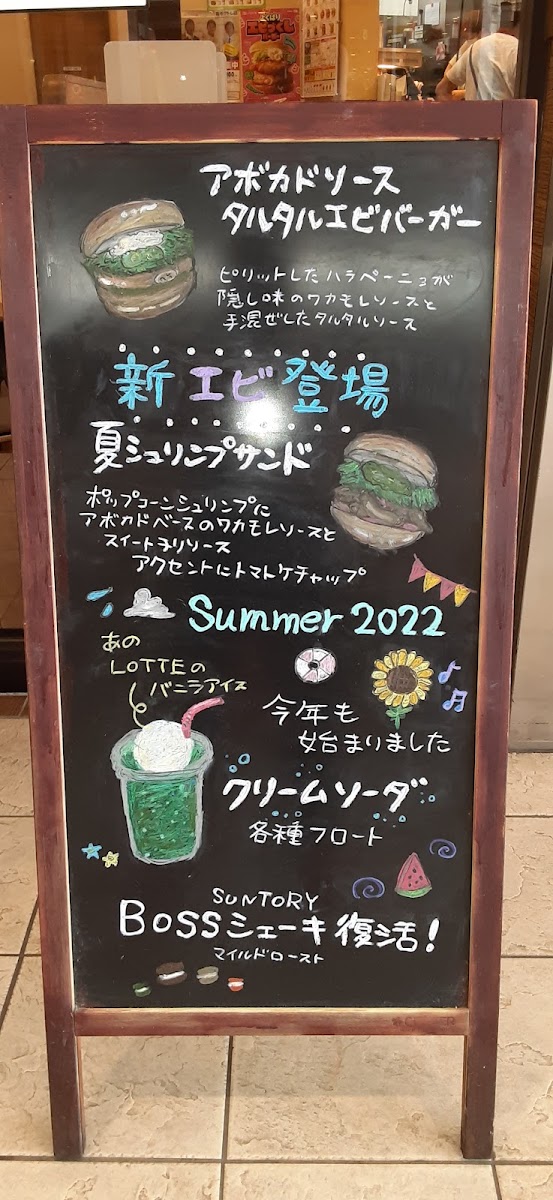 アボカドソース
タルタルエビバーガー
ピリットしたハラペーニョが
隠し味のワカモレソースと
手混ぜしたタルタルソース
新エビ登場
夏シュリンプサンド
ポップコーンシュリンプに
アボカドベースのワカモレソースと
スイートチリソース
アクセントにトマトケチャップ
Summer 2022
あの
LOTTEの
バニラアイス
今年も
始まりました
クリームソーダ
各種フロート
SUNTORY
BOSSシェーキ復活!
マイルドロースト